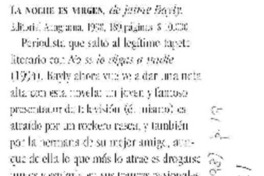 LA NOCHE ES VIRGEN, de Jaime Bayly.
Editorial Anagrama, 1998, 189 páginas. $ 10.000
Periodista que saltó al legítimo tapete
literario con No se lo digas a nadie
(1994), Bayly ahora vuelve a dar una nota
alta con esta novela: un joven y famoso
presentador de televisión (él mismo) es
atraído por un rockero rasca, y también
por la hermana de su mejor amigo, aun-
que de ella lo que más lo atrae es drogarse